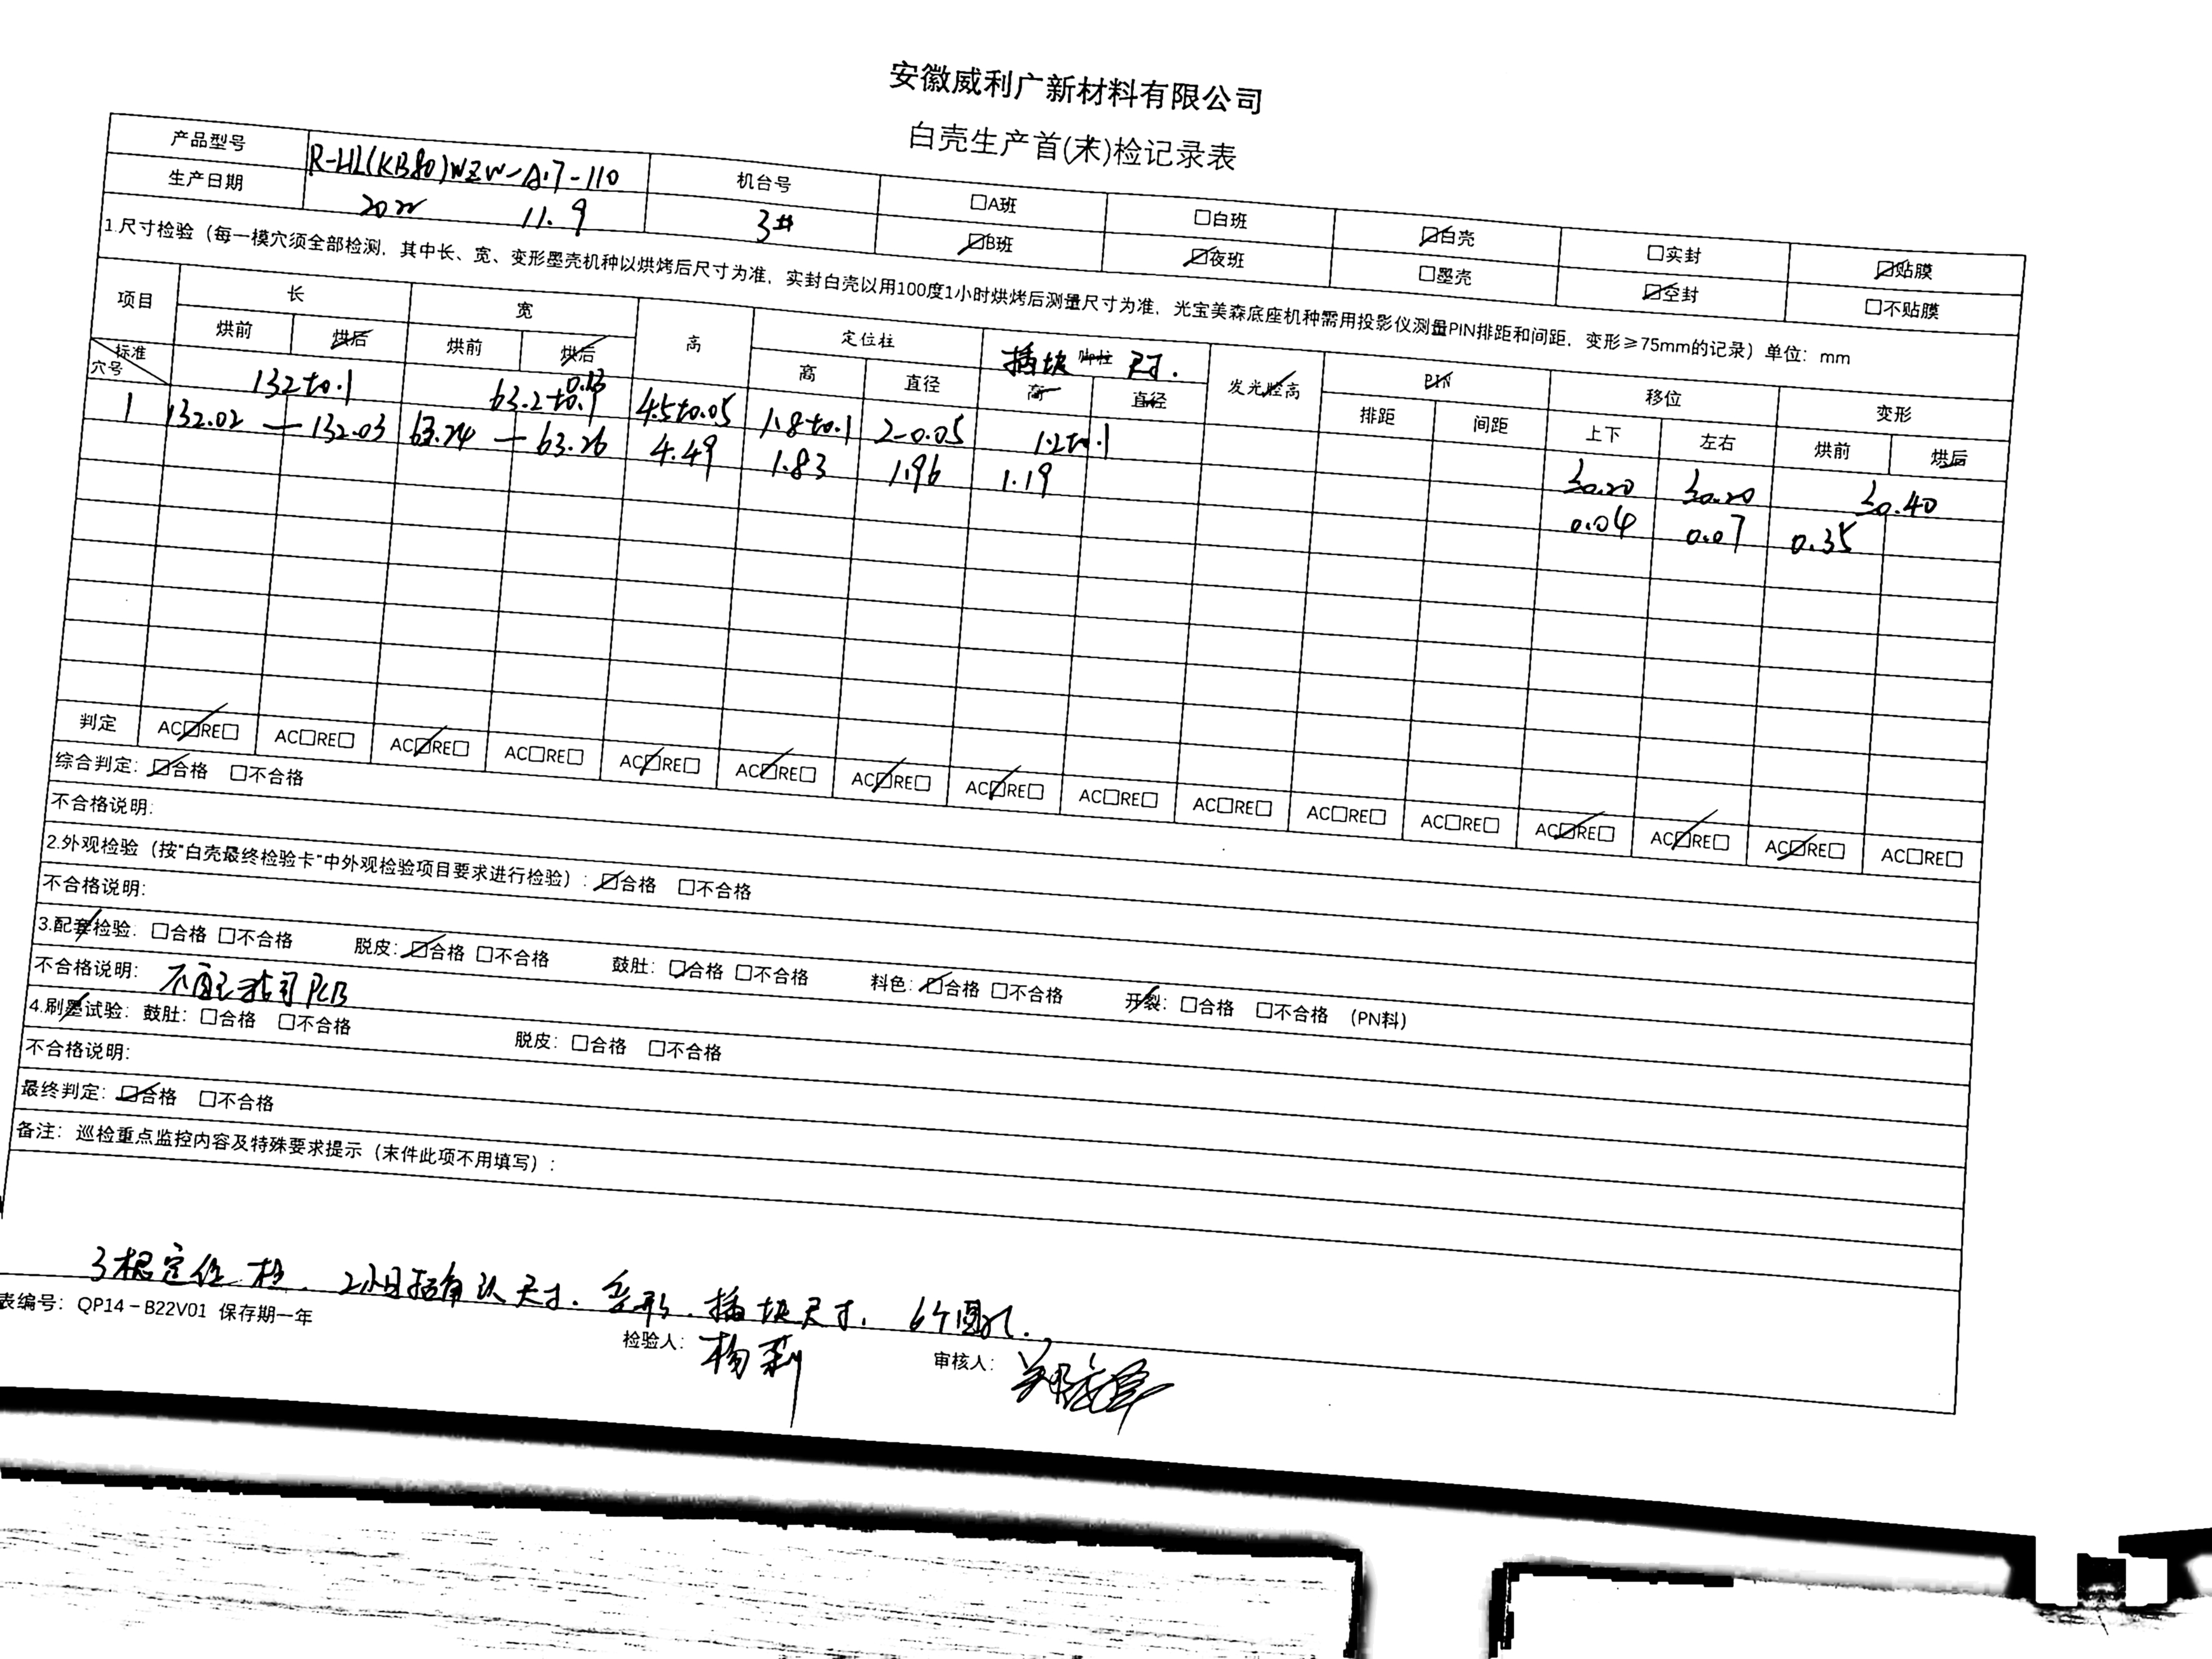 安徽威利广新材料有限公司
白壳生产首(末)检记录表
产品型号 R-HL(KB80)WZW-A:7-110 机台号 □A班 □白班 ☑白壳 □实封 ☑贴膜
生产日期 2022 11.9 3# ☑B班 ☑夜班 □墨壳 ☑空封 □不贴膜
1.尺寸检验（每一模穴须全部检测，其中长、宽、变形墨壳机种以烘烤后尺寸为准，实封白壳以用100度1小时烘烤后测量尺寸为准，光宝美森底座机种需用投影仪测量PIN排距和间距，变形≥75mm的记录）单位：mm
项目 长 宽 高 定位柱 插块 尺寸. 发光腔高 PIN 移位 变形
烘前 烘后 烘前 烘后 高 直径 高 直径 排距 间距 上下 左右 烘前 烘后
标准 穴号 132±0.1 63.2±0.13 4.5±0.05 1.8±0.1 2-0.05 1.2±0.1 ≤0.20 ≤0.20 ≤0.40
1 132.02 — 132.03 63.24 — 63.26 4.49 1.83 1.96 1.19 0.04 0.07 0.35
判定 AC☑RE□ AC□RE□ AC☑RE□ AC□RE□ AC☑RE□ AC☑RE□ AC☑RE□ AC☑RE□ AC□RE□ AC□RE□ AC□RE□ AC□RE□ AC☑RE□ AC☑RE□ AC☑RE□ AC□RE□
综合判定：☑合格 □不合格
不合格说明：
2.外观检验（按“白壳最终检验卡”中外观检验项目要求进行检验）：☑合格 □不合格
不合格说明：
3.配套检验：□合格 □不合格 脱皮：☑合格 □不合格 鼓肚：☑合格 □不合格 料色：☑合格 □不合格 开裂：□合格 □不合格 （PN料）
不合格说明： 不配 PCB
4.刷墨试验：鼓肚：□合格 □不合格 脱皮：□合格 □不合格
不合格说明：
最终判定：☑合格 □不合格
备注：巡检重点监控内容及特殊要求提示（末件此项不用填写）：
3根定位柱. 2小时后确认尺寸. 变形. 插块尺寸. 6个圆孔.
表编号：QP14－B22V01 保存期一年
检验人：杨莉 审核人：